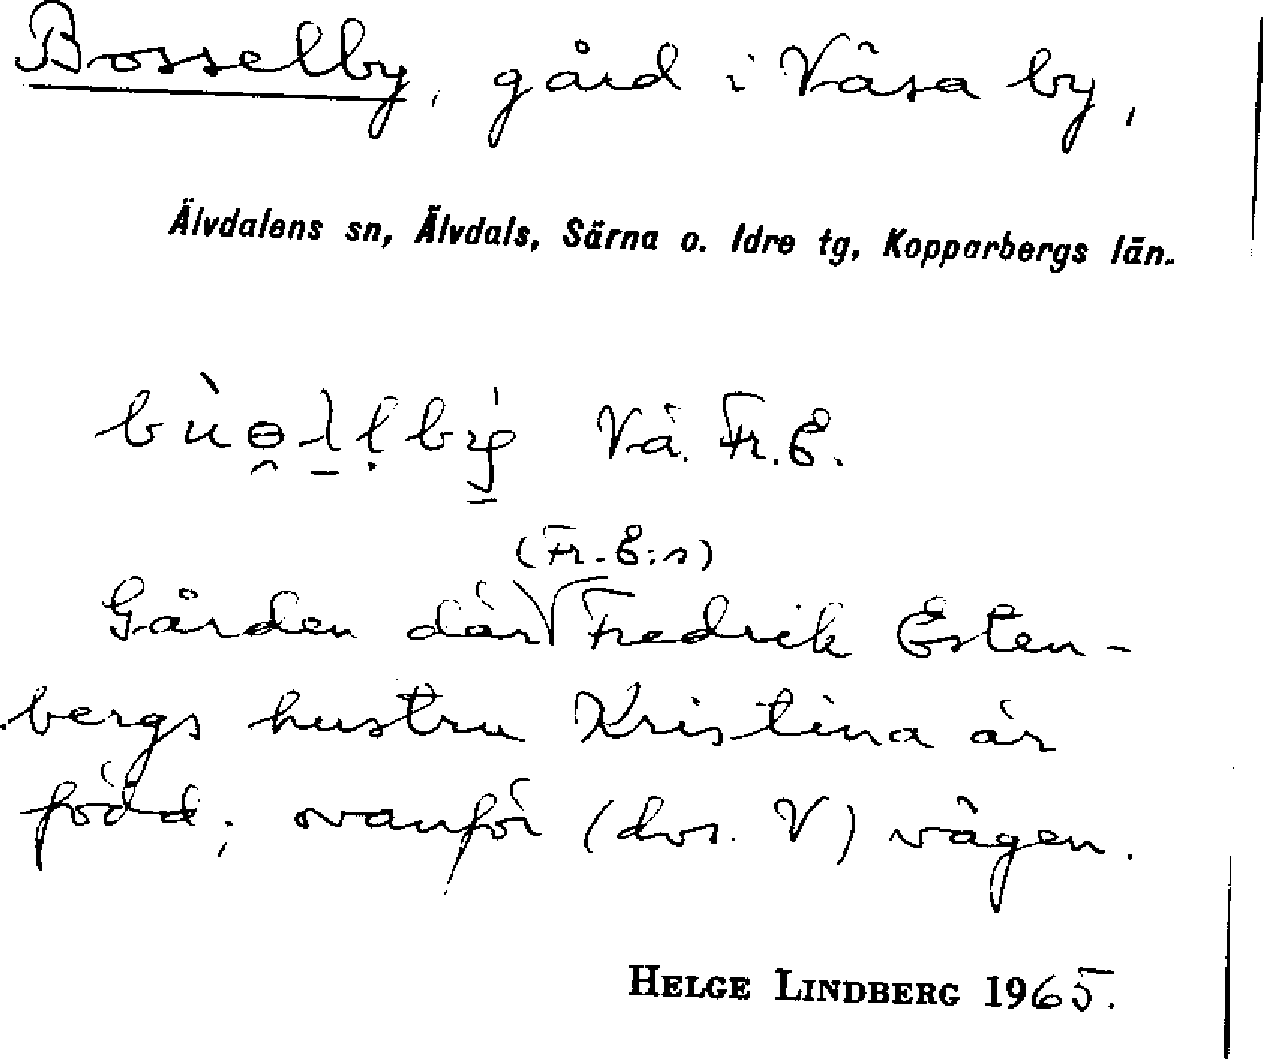 Bosselby, gård i Våsa by,
Älvdalens sn, Älvdals, Särna o. Idre tg, Kopparbergs län.
Vå. Fr. E.
(Fr. E:s)
Gården där Fredrik Esten-
bergs hustru Kristina är
född; ovanför (dvs. V) vägen.
HELGE LINDBERG 1965.